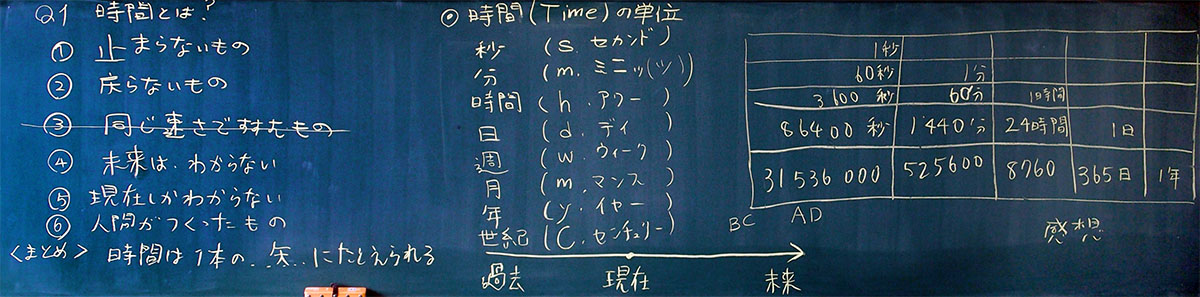 Q1 時間とは?
① 止まらないもの
② 戻らないもの
③ 同じ速さですすむもの
④ 未来は、わからない
⑤ 現在しかわからない
⑥ 人間がつくったもの
<まとめ> 時間は1本の、矢、にたとえられる
◎ 時間(Time)の単位
秒 (s. セカンド)
分 (m. ミニッ(ツ))
時間 (h. アワー)
日 (d. デイ)
週 (w. ウィーク)
月 (m. マンス)
年 (y. イヤー)
世紀 (C. センチュリー)
過去 現在 未来
BC AD
1秒
60秒 1分
3600 秒 60分 1時間
86400秒 1440分 24時間 1日
31536000 525600 8760 365日 1年
感想